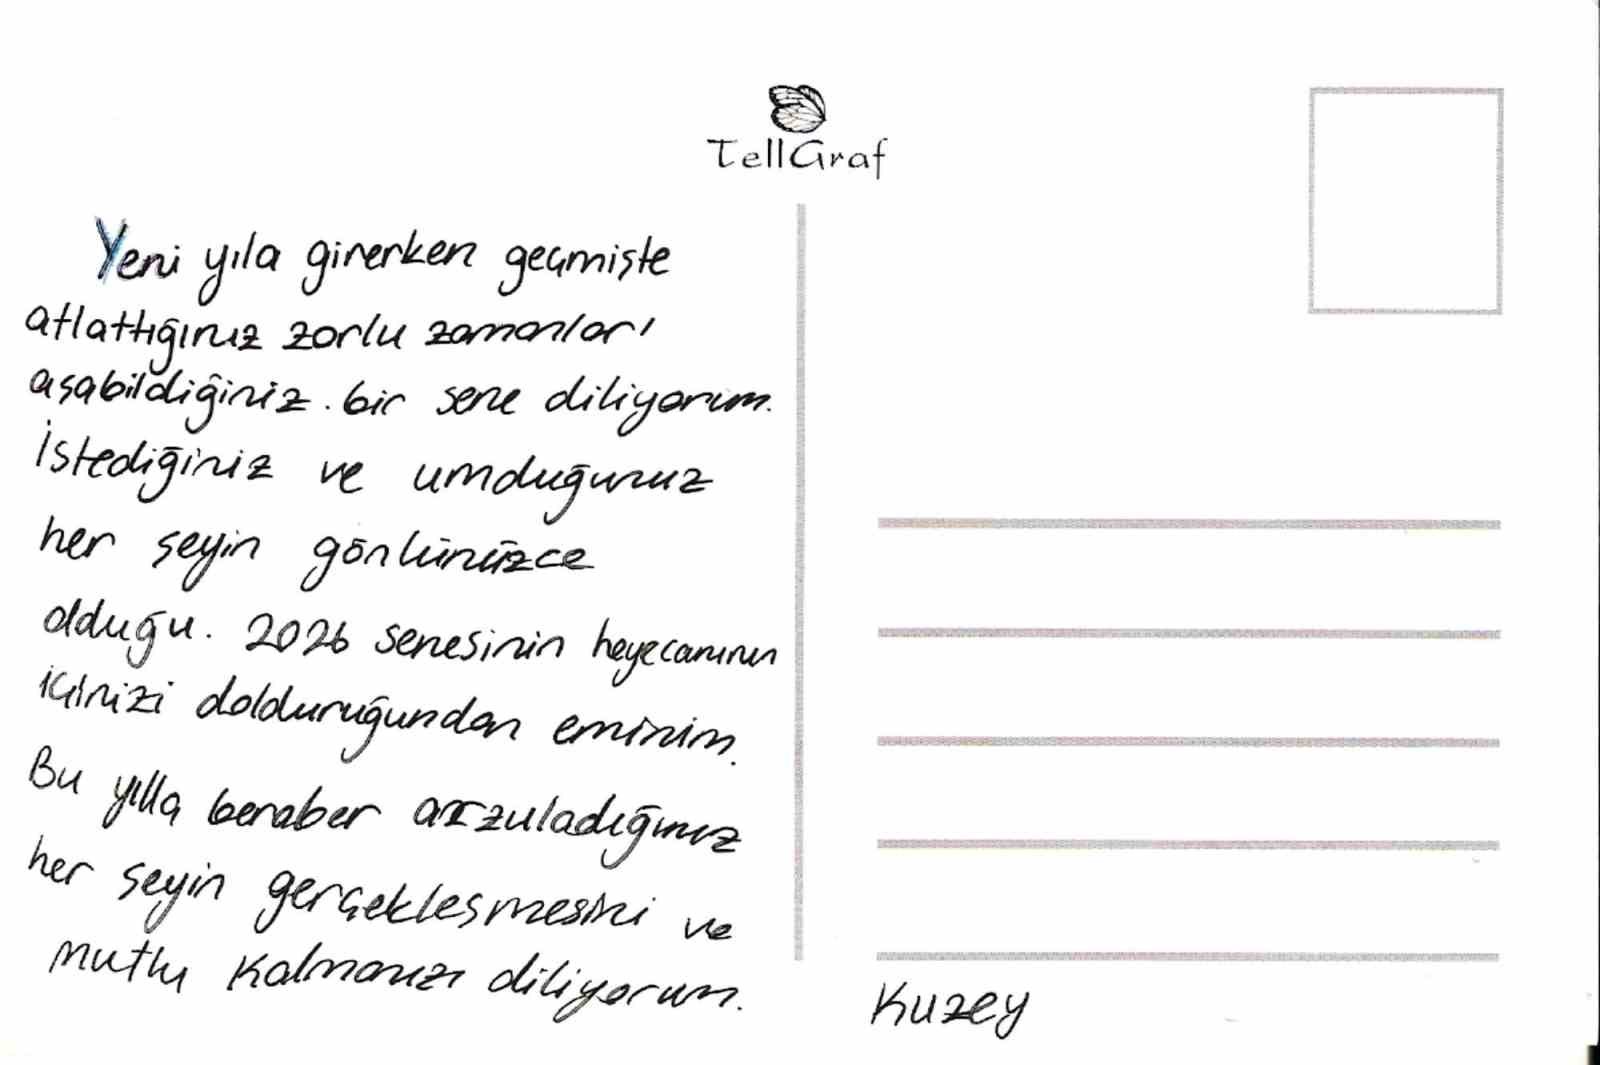 TellGraf
Yeni yıla girerken geçmişte
atlattığınız zorlu zamanları
aşabildiğiniz. bir sene diliyorum.
İstediğiniz ve umduğunuz
her şeyin gönlünüzce
olduğu. 2026 senesinin heyecanının
içinizi dolduruğundan eminim.
Bu yılla beraber arzuladığınız
her şeyin gerçekleşmesini ve
mutlu kalmanızı diliyorum.
Kuzey